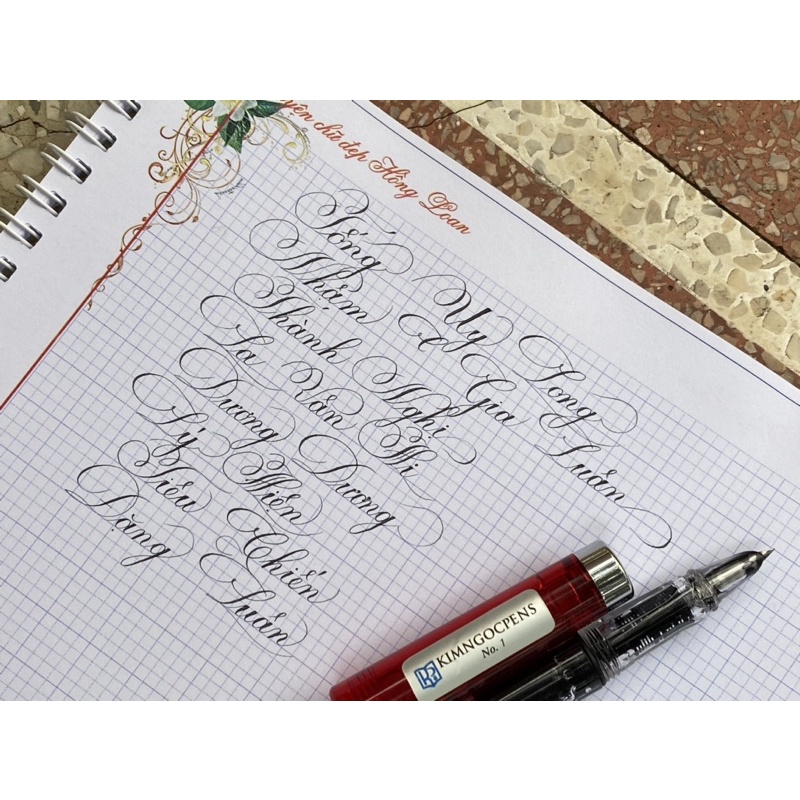 yện chữ đẹp Hồng Loan
Tống Uy Long
Nhậm Gia Luân
Thành Nghị
La Vân Hi
Dương Dương
Lý Hiện
Tiêu Chiến
Đặng Luân
KIMNGOCPENS
No. 1